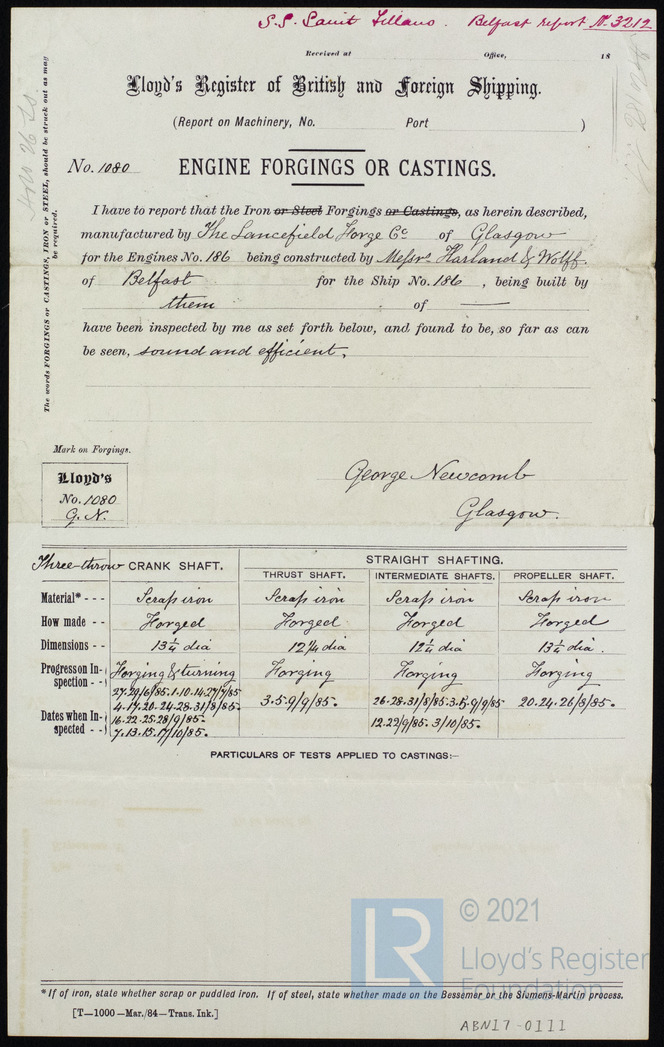 S.S. Saint Fillans. Belfast report No. 3212
Received at Office, 18
Lloyd's Register of British and Foreign Shipping.
(Report on Machinery, No. Port )
No. 1080 ENGINE FORGINGS OR CASTINGS.
The words FORGINGS or CASTINGS, IRON or STEEL, should be struck out as may
be required.
I have to report that the Iron or Steel Forgings or Castings, as herein described,
manufactured by The Lancefield Forge Co of Glasgow
for the Engines No. 186 being constructed by Messrs Harland & Wolff
of Belfast for the Ship No. 186, being built by
them of —
have been inspected by me as set forth below, and found to be, so far as can
be seen, sound and efficient.
Mark on Forgings.
Lloyd's
No. 1080
G.N.
George Newcomb
Glasgow.
Three-throw CRANK SHAFT. STRAIGHT SHAFTING.
THRUST SHAFT. INTERMEDIATE SHAFTS. PROPELLER SHAFT.
Material* - - - Scrap iron Scrap iron Scrap iron Scrap iron
How made - - Forged Forged Forged Forged
Dimensions - - 13¼ dia 12¼ dia 12¼ dia 13¼ dia.
Progress on In- Forging & turning Forging Forging Forging
spection - -
27.29/6/85. 1.10.14.27/7/85
4.17.20.24.28.31/8/85. 3.5.9/9/85. 26.28.31/8/85. 3.5.9/9/85 20.24.26/8/85.
Dates when In- 16.22.25.28/9/85. 12.22/9/85. 3/10/85.
spected - - 7.13.15.17/10/85.
PARTICULARS OF TESTS APPLIED TO CASTINGS:—
LR © 2021
Lloyd's Register
Foundation
*If of iron, state whether scrap or puddled iron. If of steel, state whether made on the Bessemer or the Siemens-Martin process.
[T—1000—Mar./84—Trans. Ink.]
ABN17-0111